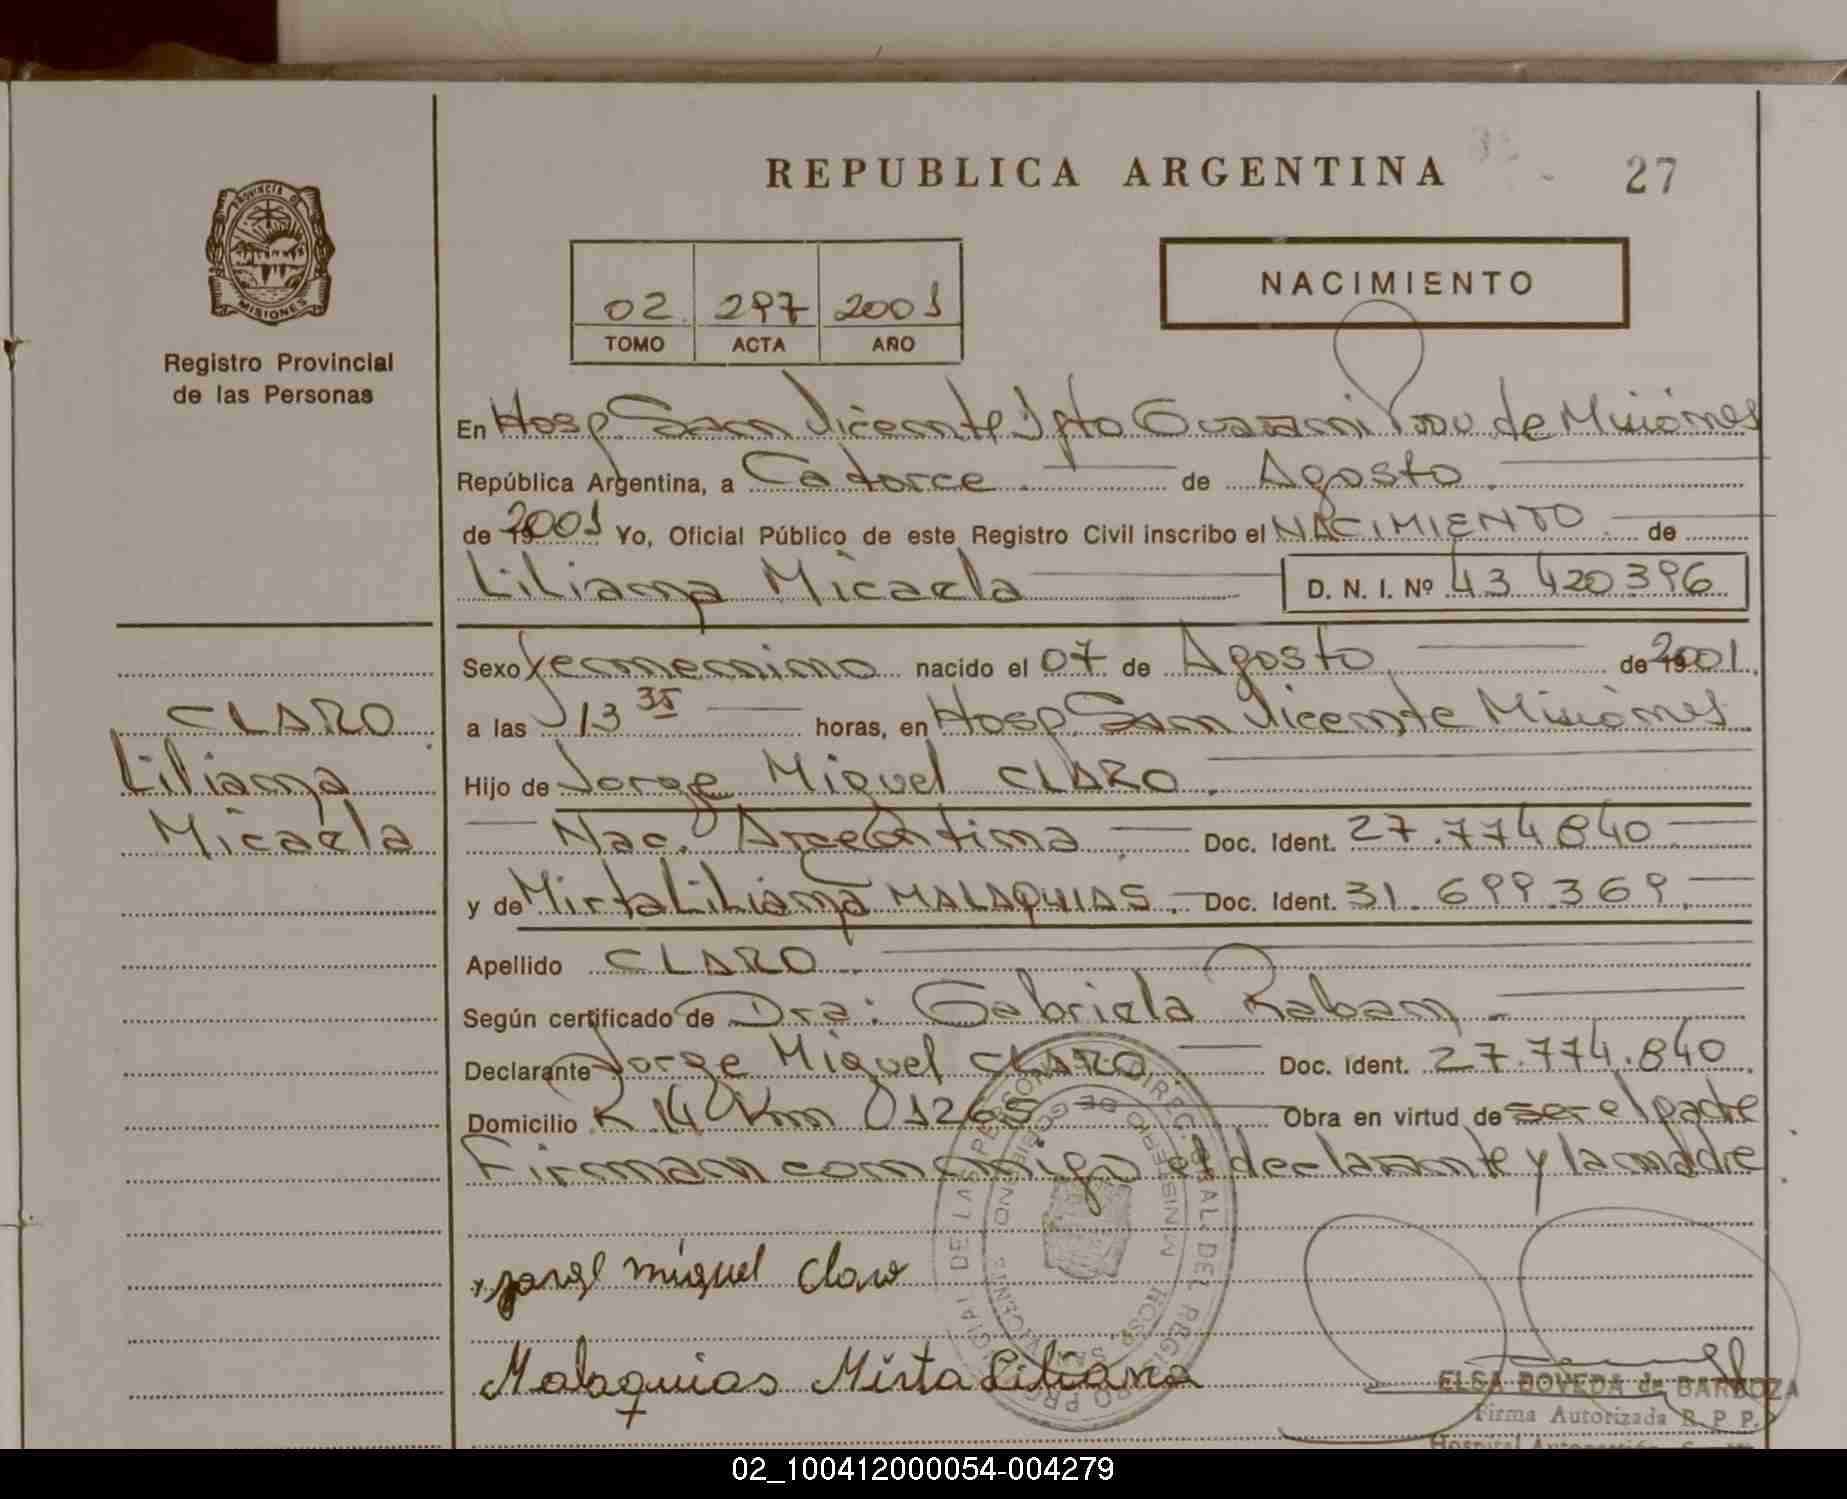 REPUBLICA ARGENTINA
27
PROVINCIA DE
MISIONES
Registro Provincial
de las Personas
02 297 2001
TOMO ACTA AÑO
NACIMIENTO
En Hosp San Vicente Dpto Guarani Prov de Misiones
República Argentina, a Catorce de Agosto
de 2001 Yo, Oficial Público de este Registro Civil inscribo el NACIMIENTO de
Liliana Micaela D. N. I. Nº 43 420396
Sexo femenino nacido el 07 de Agosto de 2001
CLARO
Liliana
Micaela
a las 13 35 horas, en Hosp San Vicente Misiones
Hijo de Jorge Miguel CLARO
Nac. Argentina Doc. Ident. 27.774840
y de Mirta Liliana MALAQUIAS. Doc. Ident. 31.699.369
Apellido CLARO
Según certificado de Dra: Gabriela Raban
Declarante Jorge Miguel CLARO Doc. Ident. 27.774.840
Domicilio R 14 Km 1265 Obra en virtud de ser el padre
Firman conmigo el declarante y la madre
miguel Claro
Malaquias Mirta Liliana
ELSA DOVEDA de BARBOZA
Firma Autorizada R. P. P.
Hospital
02_100412000054-004279